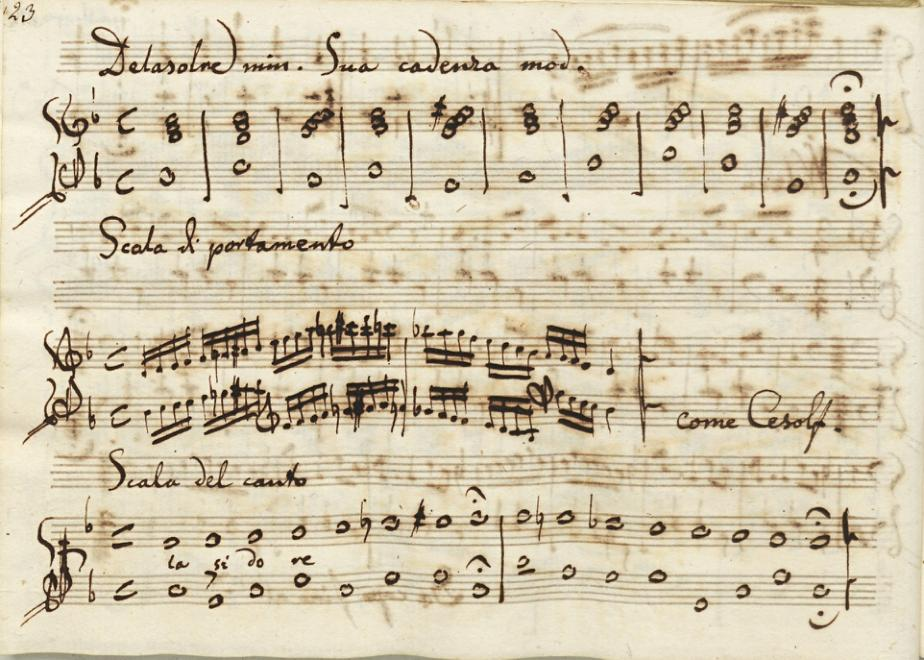 23
Delasolre min. Sua cadenza mod.
Scala di portamento
come Cesolf.
Scala del canto
la si do re